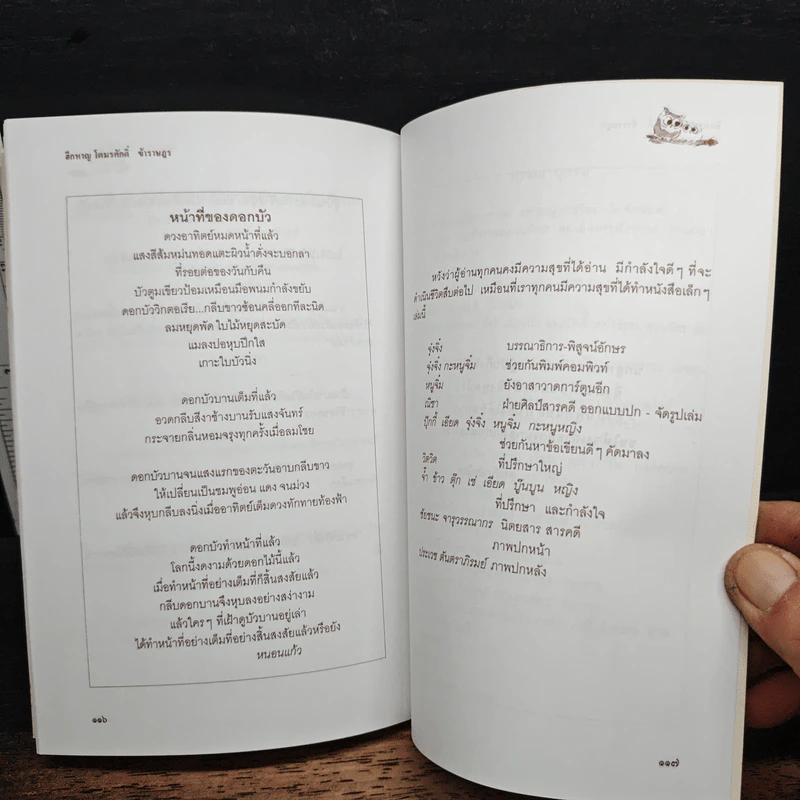 ฮีกหาญ โตมรศักดิ์ ข้าราษฎร
หน้าที่ของดอกบัว
ดวงอาทิตย์หมดหน้าที่แล้ว
แสงสีส้มหม่นทอดแตะผิวน้ำดั่งจะบอกลา
ที่รอยต่อของวันกับคืน
บัวตูมเขียวป้อมเหมือนมือพนมกำลังขยับ
ดอกบัววิกตอเรีย...กลีบขาวซ้อนคลี่ออกทีละนิด
ลมหยุดพัด ใบไม้หยุดสะบัด
แมลงปอหุบปีกใส
เกาะใบบัวนิ่ง
ดอกบัวบานเต็มที่แล้ว
อวดกลีบสีงาช้างบานรับแสงจันทร์
กระจายกลิ่นหอมจรุงทุกครั้งเมื่อลมโชย
ดอกบัวบานจนแสงแรกของตะวันอาบกลีบขาว
ให้เปลี่ยนเป็นชมพูอ่อน แดง จนม่วง
แล้วจึงหุบกลีบลงนิ่งเมื่ออาทิตย์เต็มดวงทักทายท้องฟ้า
ดอกบัวทำหน้าที่แล้ว
โลกนี้งดงามด้วยดอกไม้นี้แล้ว
เมื่อทำหน้าที่อย่างเต็มที่ก็สิ้นสงสัยแล้ว
กลีบดอกบานจึงหุบลงอย่างสง่างาม
แล้วใครๆ ที่เฝ้าดูบัวบานอยู่เล่า
ได้ทำหน้าที่อย่างเต็มที่อย่างสิ้นสงสัยแล้วหรือยัง
หนอนแก้ว
๑๑๖
หวังว่าผู้อ่านทุกคนคงมีความสุขที่ได้อ่าน มีกำลังใจดีๆ ที่จะ
ดำเนินชีวิตสืบต่อไป เหมือนที่เราทุกคนมีความสุขที่ได้ทำหนังสือเล็กๆ
เล่มนี้
จุ๋งจิ๋ง บรรณาธิการ-พิสูจน์อักษร
จุ๋งจิ๋ง กะหนูจิ๋ม ช่วยกันพิมพ์คอมพิวท์
หนูจิ๋ม ยังอาสาวาดการ์ตูนอีก
ณิชา ฝ่ายศิลป์สารคดี ออกแบบปก - จัดรูปเล่ม
ปุ๊กกี้ เอียด จุ๋งจิ๋ง หนูจิ๋ม กะหนูหญิง
ช่วยกันหาข้อเขียนดีๆ คัดมาลง
วิตวิต ที่ปรึกษาใหญ่
จ้ำ ข้าว ตุ๊ก เซ่ เอียด บู๊นบูน หญิง
ที่ปรึกษา และกำลังใจ
ชัยชนะ จารุวรรณากร นิตยสาร สารคดี
ภาพปกหน้า
ประเวช ตันตราภิรมย์ ภาพปกหลัง
๑๑๗